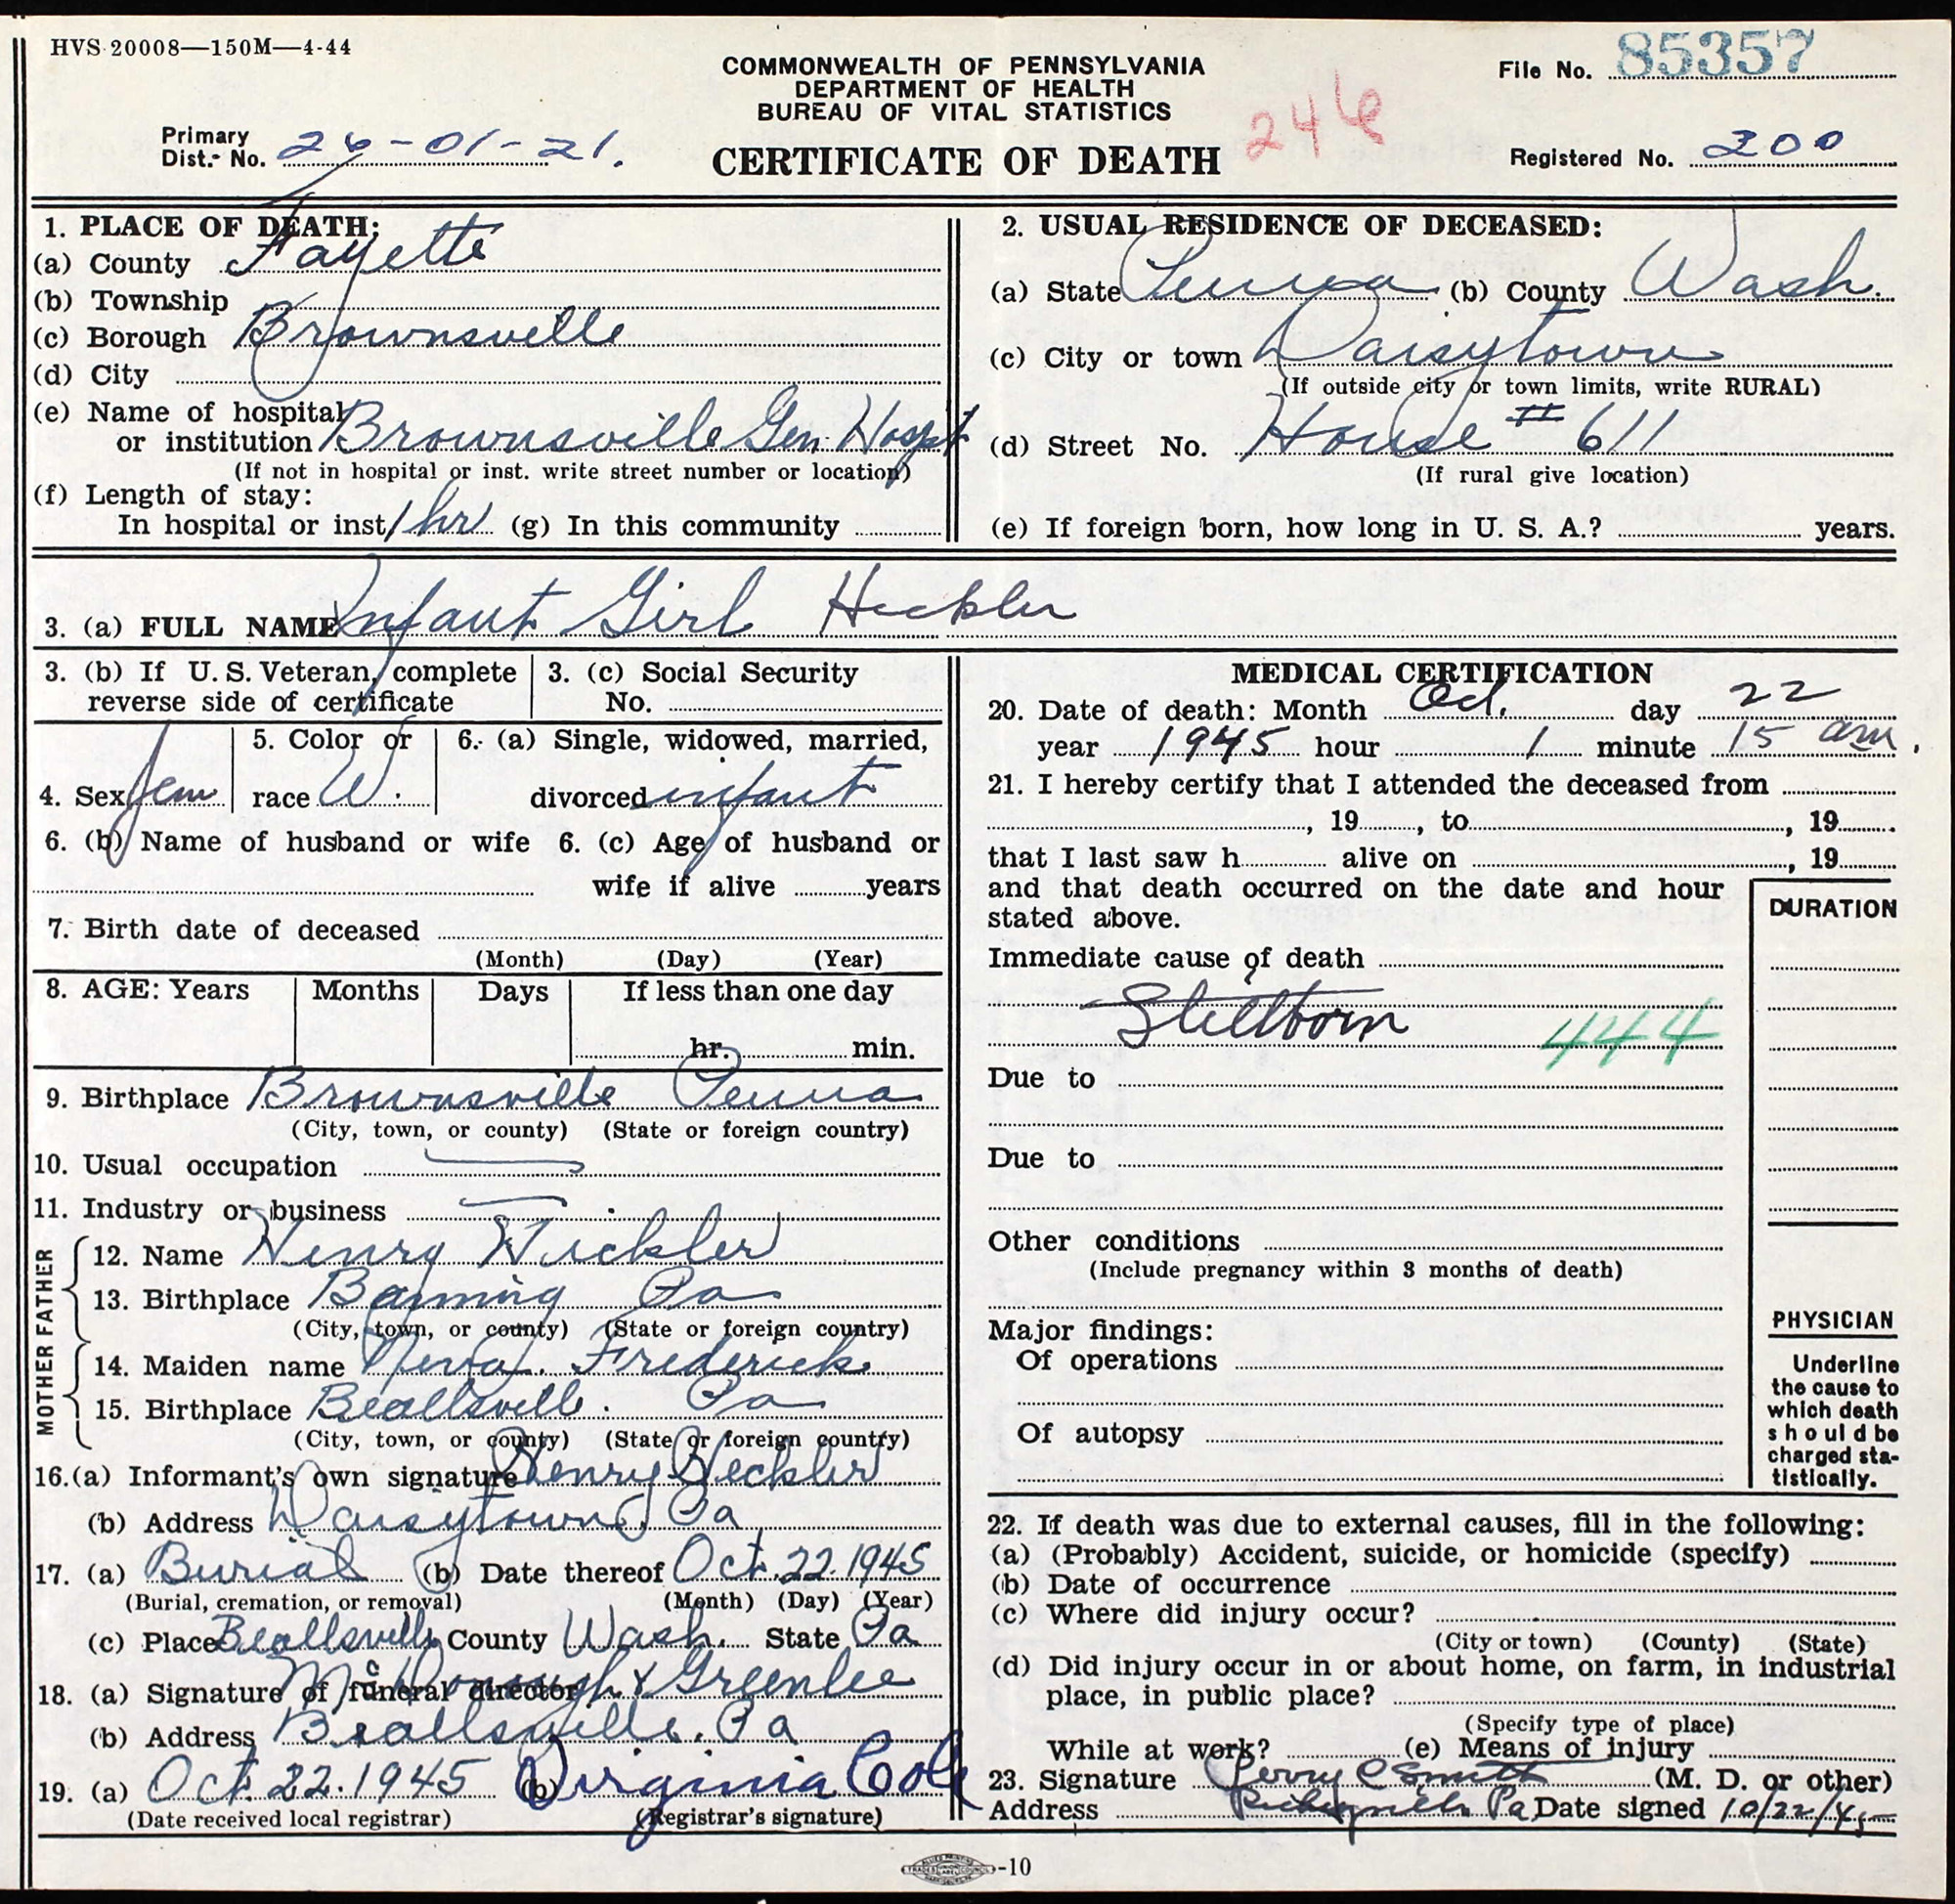 HVS 20008—150M—4-44
COMMONWEALTH OF PENNSYLVANIA
DEPARTMENT OF HEALTH
BUREAU OF VITAL STATISTICS
File No. 85357
246
Primary
Dist. No. 26-01-21.
CERTIFICATE OF DEATH
Registered No. 200
1. PLACE OF DEATH:
(a) County Fayette
(b) Township
(c) Borough Brownsville
(d) City
(e) Name of hospital
or institution Brownsville Gen. Hospt
(If not in hospital or inst. write street number or location)
(f) Length of stay:
In hospital or inst. 1 hr (g) In this community
2. USUAL RESIDENCE OF DECEASED:
(a) State Penna (b) County Wash.
(c) City or town Daisytown
(If outside city or town limits, write RURAL)
(d) Street No. House # 611
(If rural give location)
(e) If foreign born, how long in U. S. A.? years.
3. (a) FULL NAME Infant Girl Heckler
3. (b) If U. S. Veteran, complete
reverse side of certificate
3. (c) Social Security
No.
4. Sex Fem
5. Color or
race W.
6. (a) Single, widowed, married,
divorced infant
6. (b) Name of husband or wife 6. (c) Age of husband or
wife if alive years
7. Birth date of deceased
(Month) (Day) (Year)
8. AGE: Years Months Days If less than one day
hr. min.
9. Birthplace Brownsville Penna
(City, town, or county) (State or foreign country)
10. Usual occupation
11. Industry or business
FATHER
12. Name Henry Heckler
13. Birthplace Banning Pa
(City, town, or county) (State or foreign country)
MOTHER
14. Maiden name Neva. Frederick
15. Birthplace Beallsville. Pa
(City, town, or county) (State or foreign country)
16.(a) Informant's own signature Henry Heckler
(b) Address Daisytown, Pa
17. (a) Burial (b) Date thereof Oct. 22. 1945
(Burial, cremation, or removal) (Month) (Day) (Year)
(c) Place Beallsville County Wash. State Pa
18. (a) Signature of funeral director McDonough & Greenlee
(b) Address Beallsville. Pa
19. (a) Oct. 22. 1945 (b) Virginia Cole
(Date received local registrar) (Registrar's signature)
MEDICAL CERTIFICATION
20. Date of death: Month Oct. day 22
year 1945 hour 1 minute 15 am.
21. I hereby certify that I attended the deceased from
, 19 , to , 19
that I last saw h alive on , 19
and that death occurred on the date and hour
stated above.
DURATION
Immediate cause of death
Stillborn 444
Due to
Due to
Other conditions
(Include pregnancy within 3 months of death)
Major findings:
Of operations
Of autopsy
PHYSICIAN
Underline
the cause to
which death
should be
charged sta-
tistically.
22. If death was due to external causes, fill in the following:
(a) (Probably) Accident, suicide, or homicide (specify)
(b) Date of occurrence
(c) Where did injury occur?
(City or town) (County) (State)
(d) Did injury occur in or about home, on farm, in industrial
place, in public place?
(Specify type of place)
While at work? (e) Means of injury
23. Signature Perry C Smith (M. D. or other)
Address Pa Date signed 10/22/45
-10